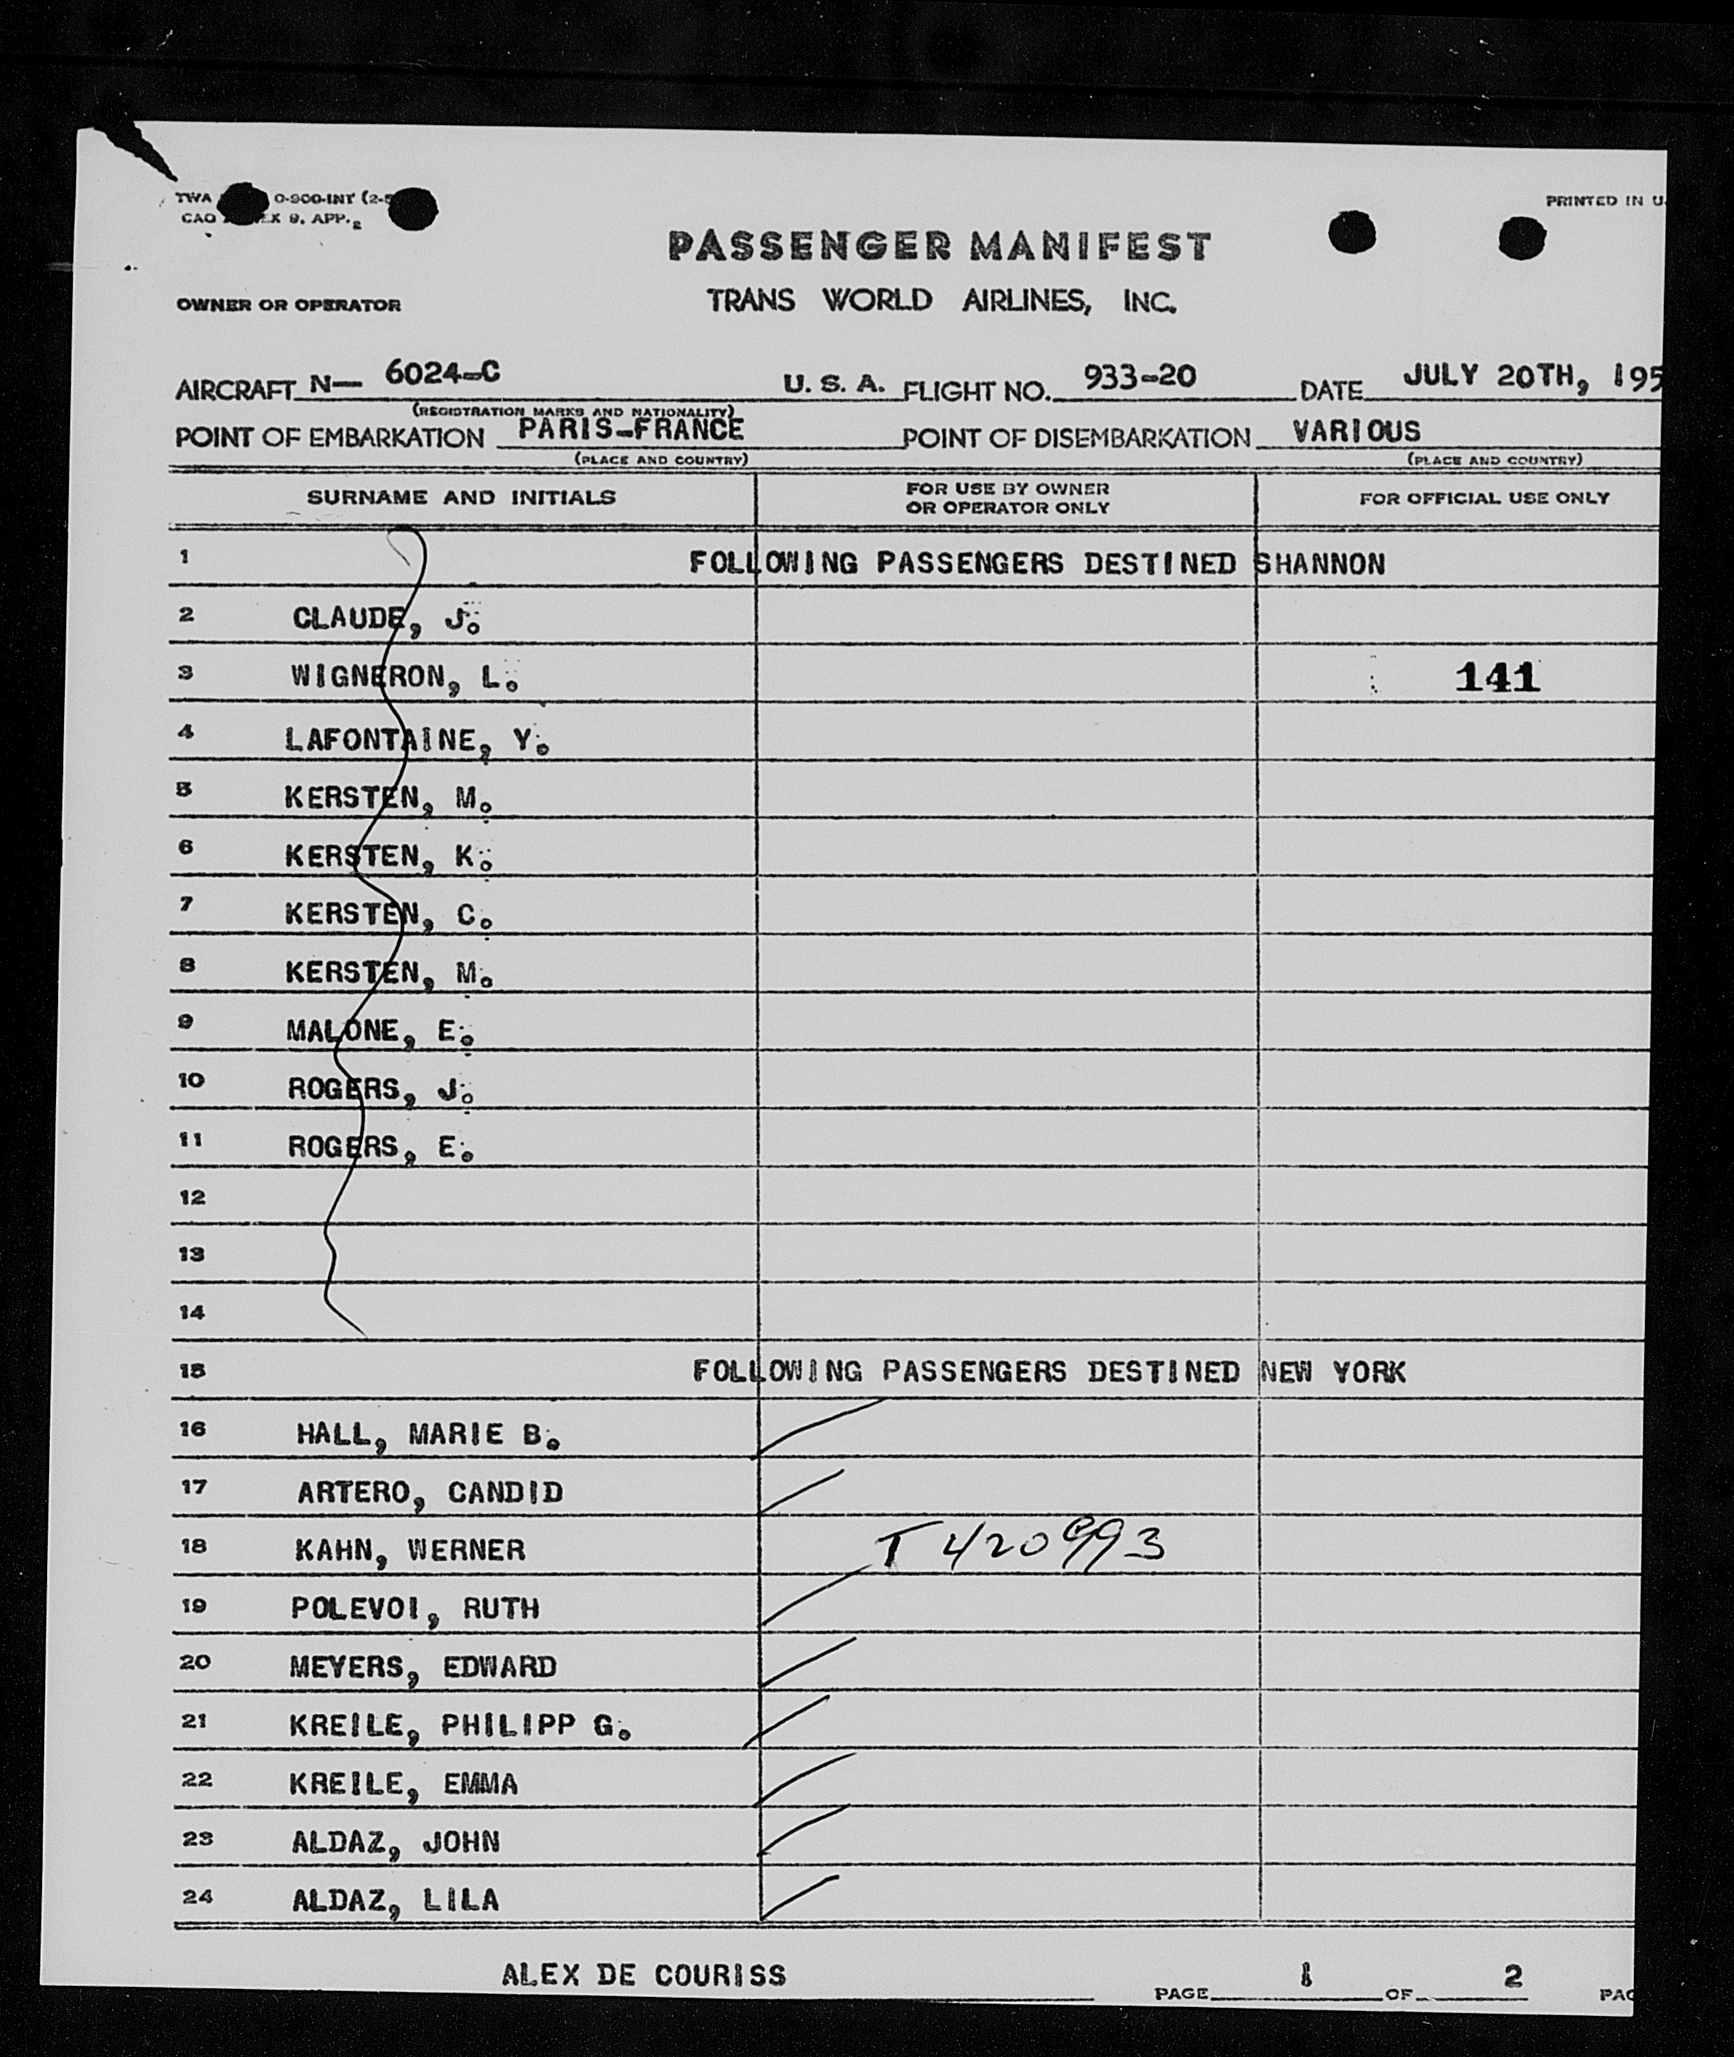 TWA O-900-INT (2-5
CAO X 9. APP. 2
PRINTED IN U.
PASSENGER MANIFEST
OWNER OR OPERATOR TRANS WORLD AIRLINES, INC.
AIRCRAFT N— 6024-C U. S. A. FLIGHT NO. 933-20 DATE JULY 20TH, 195
(REGISTRATION MARKS AND NATIONALITY)
POINT OF EMBARKATION PARIS-FRANCE POINT OF DISEMBARKATION VARIOUS
(PLACE AND COUNTRY) (PLACE AND COUNTRY)
SURNAME AND INITIALS FOR USE BY OWNER OR OPERATOR ONLY FOR OFFICIAL USE ONLY
1 FOLLOWING PASSENGERS DESTINED SHANNON
2 CLAUDE, J.
3 WIGNERON, L. 141
4 LAFONTAINE, Y.
5 KERSTEN, M.
6 KERSTEN, K.
7 KERSTEN, C.
8 KERSTEN, M.
9 MALONE, E.
10 ROGERS, J.
11 ROGERS, E.
12
13
14
15 FOLLOWING PASSENGERS DESTINED NEW YORK
16 HALL, MARIE B.
17 ARTERO, CANDID
18 KAHN, WERNER T 420993
19 POLEVOI, RUTH
20 MEYERS, EDWARD
21 KREILE, PHILIPP G.
22 KREILE, EMMA
23 ALDAZ, JOHN
24 ALDAZ, LILA
ALEX DE COURISS
PAGE 1 OF 2 PAG